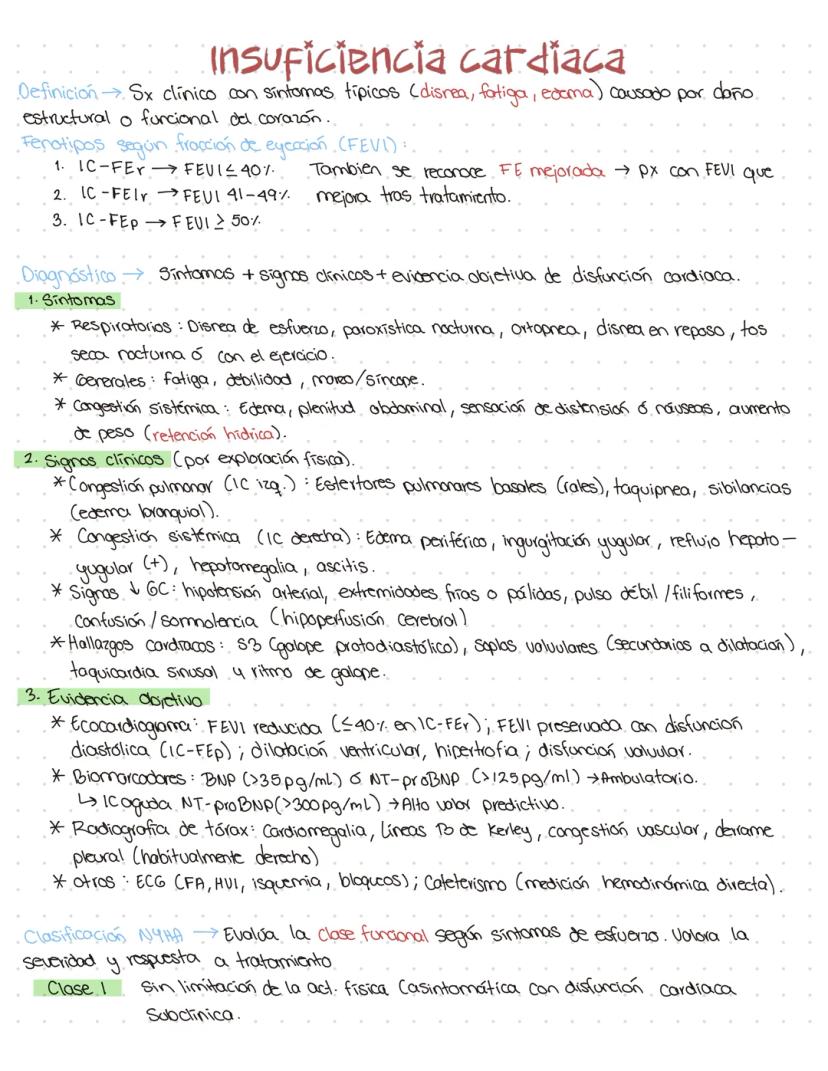 Insuficiencia cardiaca
Definición → Sx clínico con síntomas típicos (disnea, fatiga, edema) causado por daño
estructural o funcional del corazón.
Fenotipos según fracción de eyección (FEVI):
1. IC-FEr → FEVI ≤ 40%. También se reconoce FE mejorada → px con FEVI que
2. IC-FEIr → FEVI 41-49% mejora tras tratamiento.
3. IC-FEp → FEVI ≥ 50%
Diagnóstico → Síntomas + signos clínicos + evidencia objetiva de disfunción cardiaca.
1. Síntomas
* Respiratorios: Disnea de esfuerzo, paroxística nocturna, ortopnea, disnea en reposo, tos
seca nocturna ó con el ejercicio.
* Generales: fatiga, debilidad, mareo/síncope.
* Congestión sistémica: Edema, plenitud abdominal, sensación de distensión ó náuseas, aumento
de peso (retención hídrica).
2. Signos clínicos (por exploración física).
* Congestión pulmonar (IC izq.): Estertores pulmonares basales (rales), taquipnea, sibilancias
(edema bronquial).
* Congestión sistémica (IC derecha): Edema periférico, ingurgitación yugular, reflujo hepato-
yugular (+), hepatomegalia, ascitis.
* Signos ↓ GC: hipotensión arterial, extremidades frías o pálidas, pulso débil/filiformes,
confusión/somnolencia (hipoperfusión cerebral)
* Hallazgos cardiacos: S3 (galope protodiastólico), soplos valvulares (secundarios a dilatación),
taquicardia sinusal y ritmo de galope.
3. Evidencia objetivo
* Ecocardiograma: FEVI reducida (≤40% en IC-FEr); FEVI preservada con disfunción
diastólica (IC-FEp); dilatación ventricular, hipertrofia; disfunción valvular.
* Biomarcadores: BNP (>35pg/mL) ó NT-proBNP (>125pg/ml) → Ambulatorio.
↳ IC aguda NT-proBNP (>300pg/mL) → Alto valor predictivo.
* Radiografía de tórax: Cardiomegalia, Líneas B de Kerley, congestión vascular, derrame
pleural (habitualmente derecho)
* otros: ECG (FA, HVI, isquemia, bloqueos); Cateterismo (medición hemodinámica directa).
Clasificación NYHA → Evalúa la clase funcional según síntomas de esfuerzo. Valora la
severidad y respuesta a tratamiento
Clase I Sin limitación de la act. física (asintomática con disfunción cardiaca
subclínica.